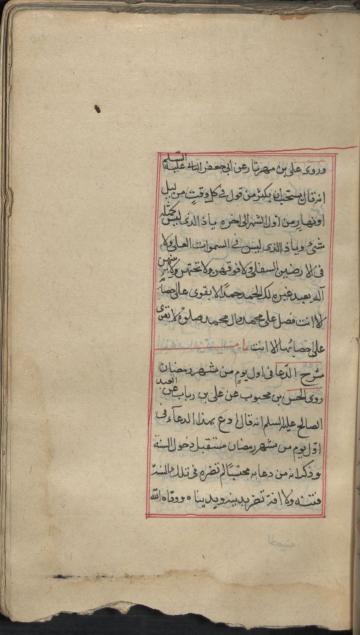 وروى علي بن مهزيار عن ابي جعفر الثاني عليه السلم
انه قال يستحب ان يكثر من قول في كل وقت من ليل
او نهار من اول الشهر الى اخره يا ذا الذي ليس كمثله
شئ ويا ذا الذي ليس في السموات العلى ولا
في الارضين السفلى ولا فوقهن ولا تحتهن ولا بينهن
اله يعبد غيره لك الحمد حمدا لا يقوى على احصائه
الا انت فصل على محمد وال محمد صلوة لا يقوى
على احصائها الا انت
شرح الدعا في اول يوم من شهر رمضان
روى الحسن بن محبوب عن علي بن رياب عن العبد
الصالح عليه السلم انه قال ادع بهذا الدعاء في
اول يوم من شهر رمضان مستقبل دخول السنة
وذكر انه من دعا به محتسبا لم تضره في تلك السنة
فتنة ولا افة تضر بدينه وبدينا ه ووقاه الله